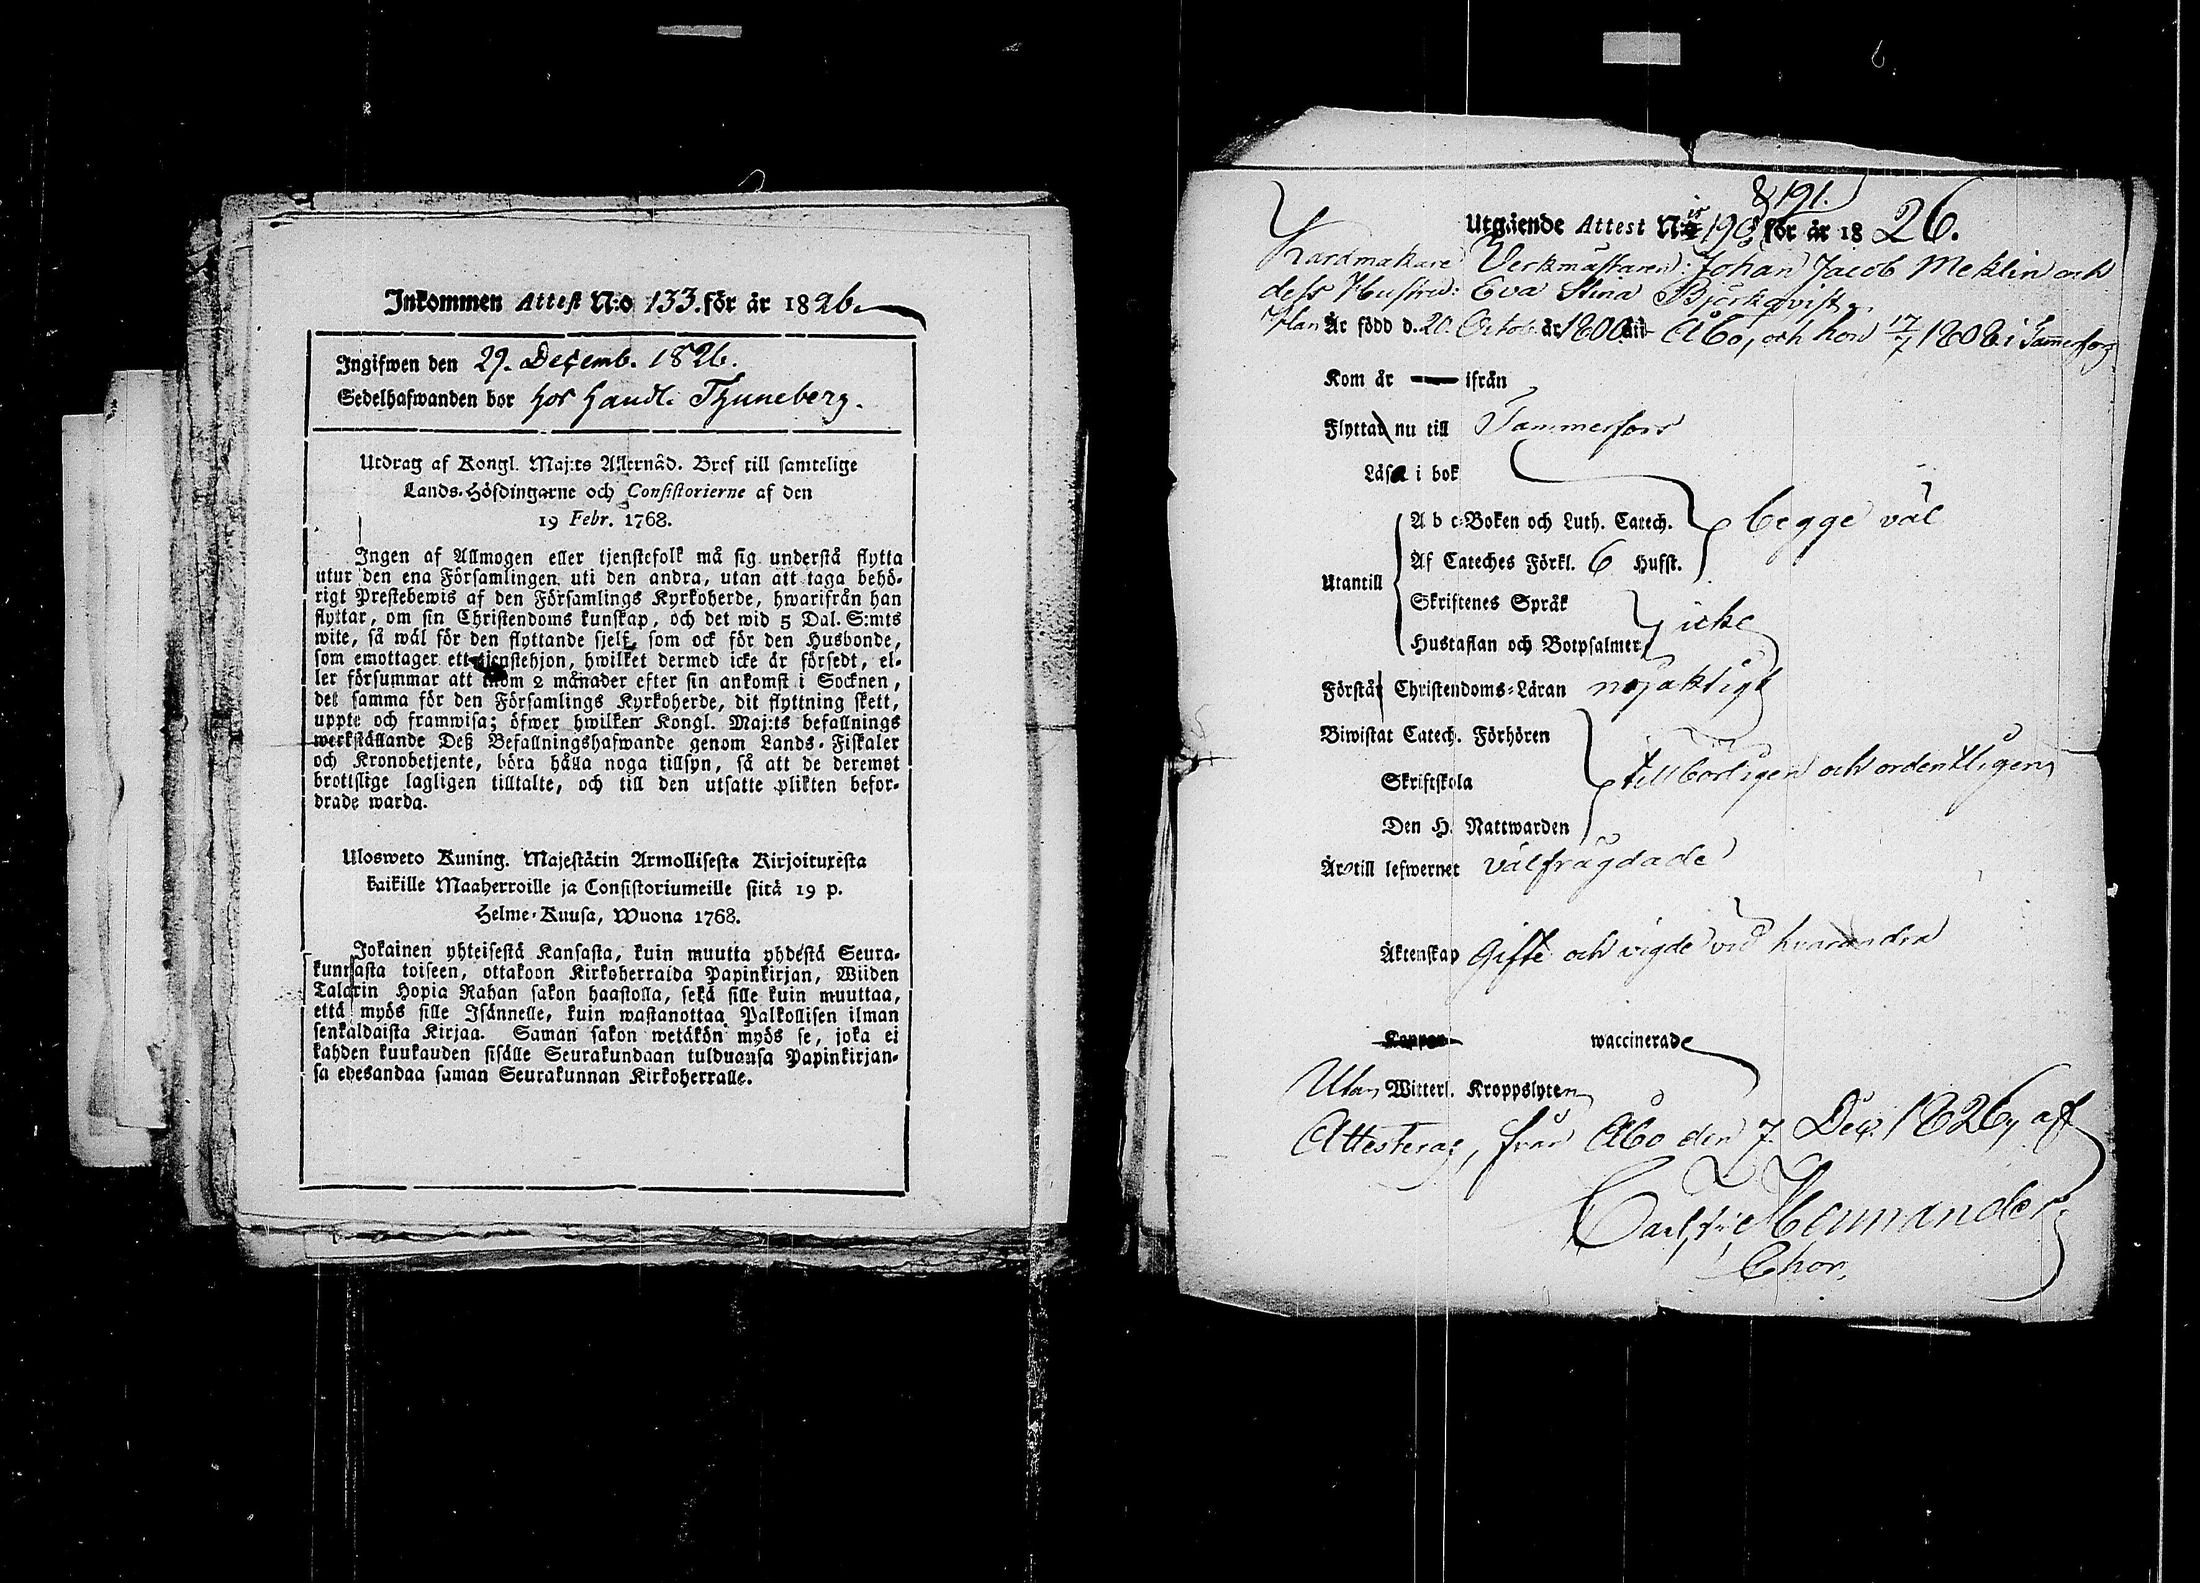 Inkommen Attest N:o 133. för år 1826.
Ingifwen den 29. Decemb. 1826.
Sedelhafwanden bor hos Handl. Thuneberg.
Utdrag af Kongl. Maj:ts Allernåd. Bref till samtelige
Lands-Höfdingarne och Consistorierne af den
19 Febr. 1768.
Ingen af Allmogen eller tjenstefolk må sig understå flytta
utur den ena Församlingen uti den andra, utan att taga behö-
rigt Prestebewis af den Församlings Kyrkoherde, hwarifrån han
flyttar, om sin Christendoms kunskap, och det wid 5 Dal. S:mts
wite, så wäl för den flyttande sjelf, som ock för den Husbonde,
som emottager ett tjenstehjon, hwilket dermed icke är försedt, el-
ler försummar att inom 2 månader efter sin ankomst i Socknen,
det samma för den Församlings Kyrkoherde, dit flyttning skett,
uppte och framwisa; öfwer hwilken Kongl. Maj:ts befallnings
werkställande Deß Befallningshafwande genom Lands-Fiskaler
och Kronobetjente, böra hålla noga tillsyn, så att de deremot
brottslige lagligen tilltalte, och till den utsatte plikten befor-
drade warda.
Ulosweto Kuning. Majestätin Armollisesta Kirjoituxesta
kaikille Maaherroille ja Consistoriumeille siitä 19 p.
Helme-Kuusa, Wuona 1768.
Jokainen yhteisestä Kansasta, kuin muutta yhdestä Seura-
kunnasta toiseen, ottakoon Kirkoherralda Papinkirjan, Wiiden
Talarin Hopia Rahan sakon haastolla, sekä sille kuin muuttaa,
että myös sille Isännelle, kuin wastanottaa Palkollisen ilman
senkaldaista Kirjaa. Saman sakon wetäkön myös se, joka ei
kahden kuukauden sisälle Seurakundaan tulduansa Papinkirjan-
sa edesandaa saman Seurakunnan Kirkoherralle.
& 191.
Utgående Attest N:is 190 för år 1826.
Kardmakare Verkmästaren: Johan Jacob Meklin och
dess Hustru: Eva Stina Björkqvist.
Han Är född d. 20. Octob. år 1800 uti Åbo, och hon 17/7 1808 i Tammerfors
Kom år — ifrån
Flytta nu till Tammerfors
Läsa i bok
A b c-Boken och Luth. Catech. begge väl
Af Cateches Förkl. 6 Hufst.
Utantill
Skriftenes Språk
Hustaflan och Botpsalmer icke
Förstå Christendoms-Läran nöjaktigt
Biwistat Catech. Förhören
Skriftskola tillbörligen och ordentligen
Den H. Nattwarden
Äro till lefwernet välfrägdade
Äktenskap Gifte och vigde vid hvarandra
Koppor waccinerade
Utan Witterl. Kroppslyten
Attesteras, från Åbo den 7. Dec. 1826, af
Carl Fr:
Chor.